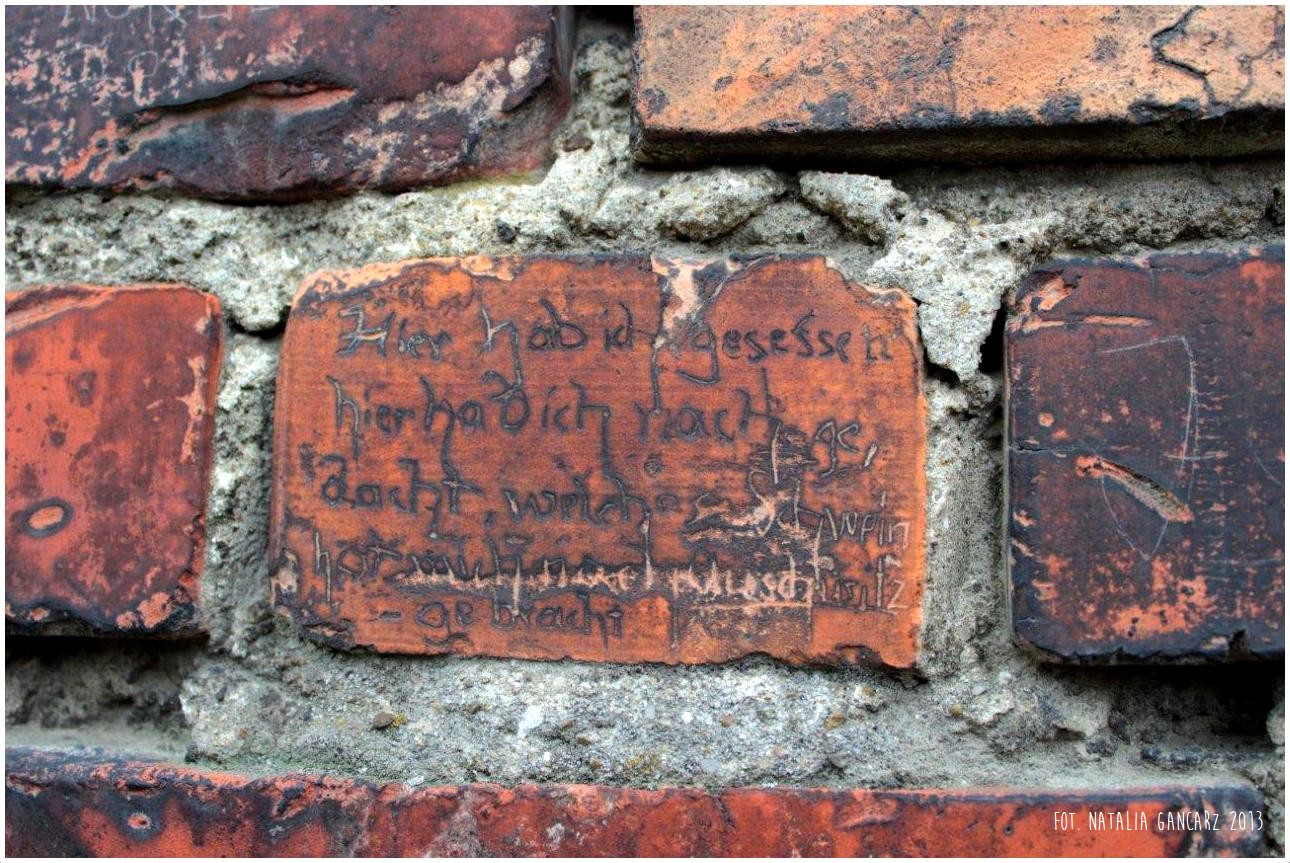 Hier hab ich gesessen
hier hab ich nach ge,
dacht, welches Schwein
hat mich nach
- gebracht
FOT. NATALIA GANCARZ 2013